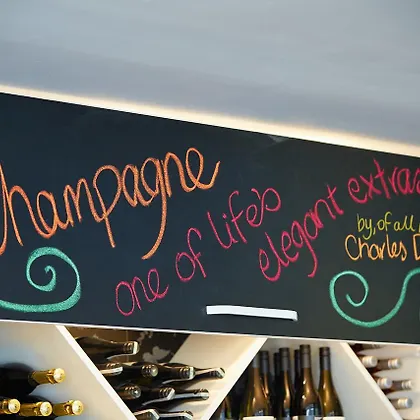 Champagne
one of life's
elegant extra
by, of all
Charles D